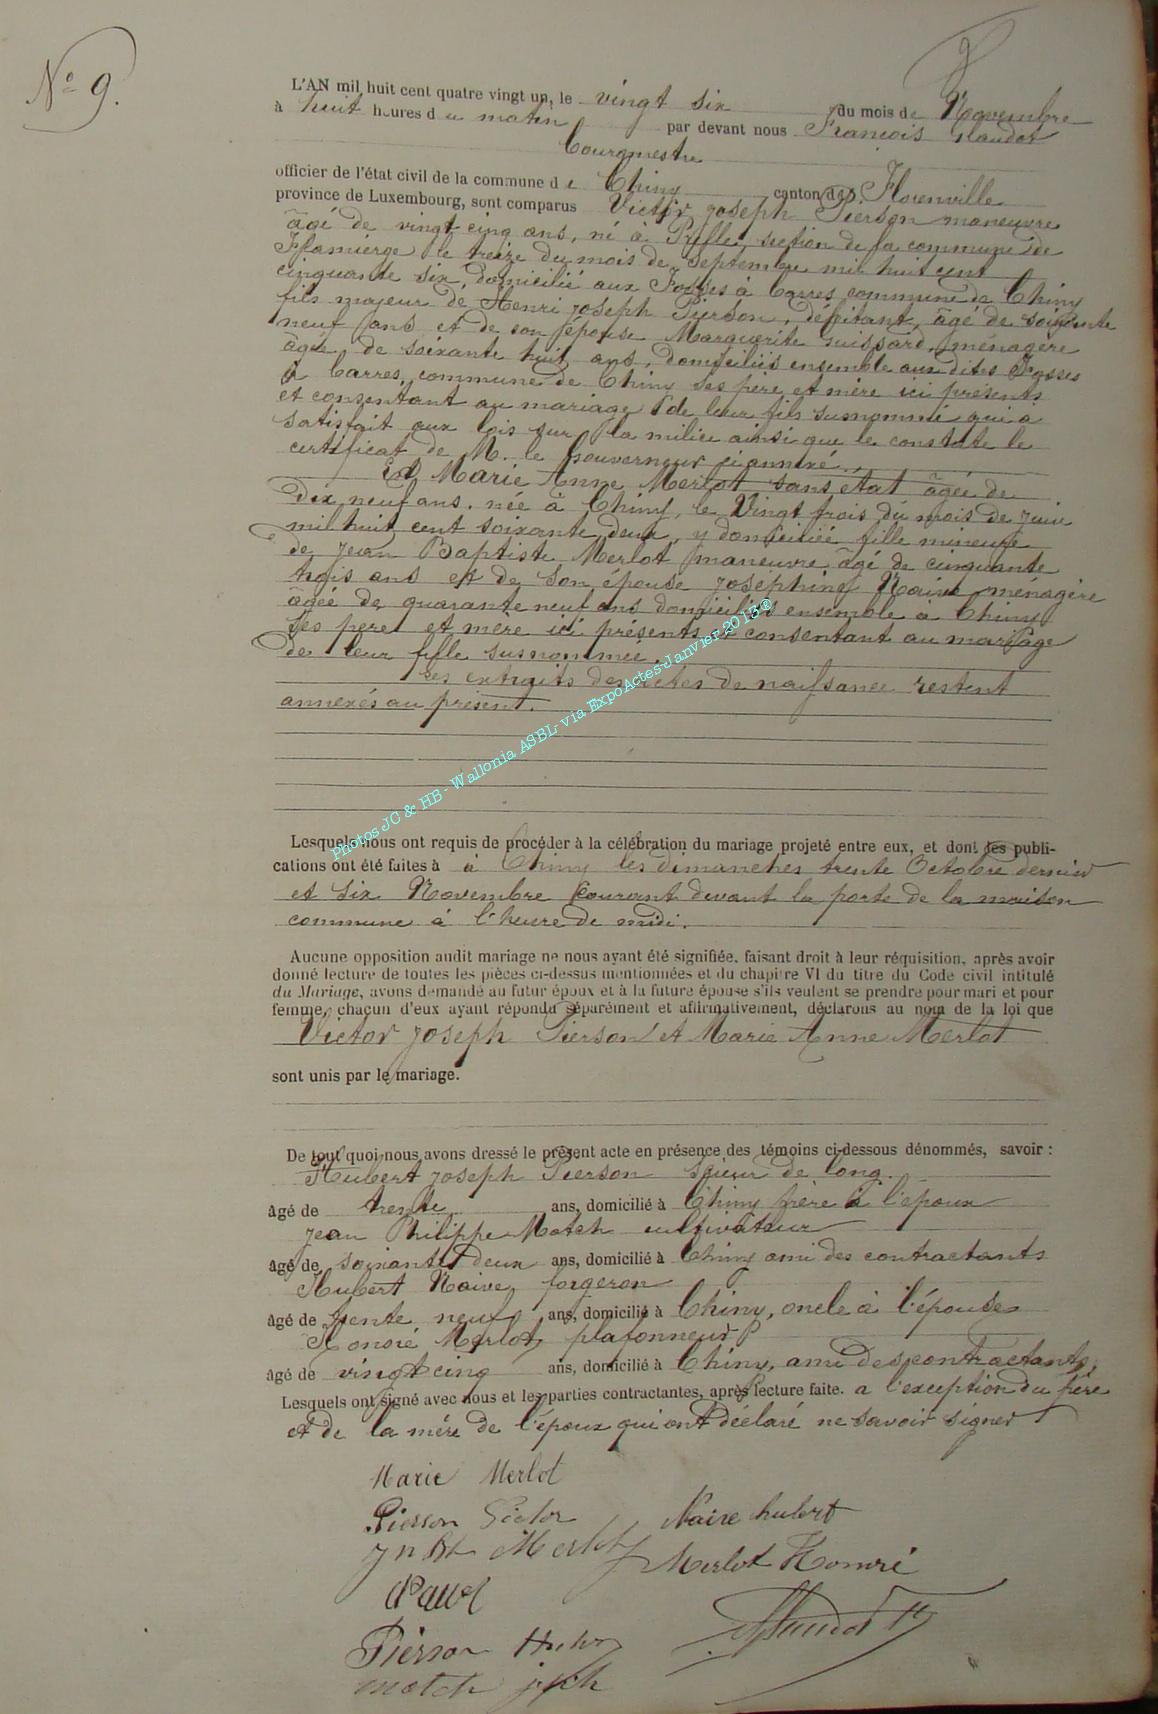 N° 9.
L'AN mil huit cent quatre vingt un, le vingt six du mois de Novembre
à huit heures du matin par devant nous François
Bourgmestre
officier de l'état civil de la commune de Chiny canton de Florenville
province de Luxembourg, sont comparus Victor Joseph Pierson maneuvre
âgé de vingt cinq ans, né à section de la commune de
Flamierge le treize du mois de Septembre mil huit cent
cinquante six, domicilié aux Fosses à Carres commune de Chiny
fils majeur de Henri Joseph Pierson, débitant, âgé de soixante
neuf ans et de son épouse Marguerite Guissard, ménagère
âgée de soixante huit ans, domiciliés ensemble aux dites Fosses
à Carres, commune de Chiny ses père et mère ici présents
et consentant au mariage de leur fils susnommé qui a
satisfait aux lois sur la milice ainsi que le constate le
certificat de M. le Gouverneur ci annexé.
Et Marie Anne Merlot sans état âgée de
dix neuf ans, née à Chiny, le Vingt trois du mois de Juin
mil huit cent soixante deux, y domiciliée fille mineure
de Jean Baptiste Merlot maneuvre âgé de cinquante
trois ans et de son épouse Joséphine Naive ménagère
âgée de quarante neuf ans domiciliés ensemble à Chiny
ses père et mère ici présents et consentant au mariage
de leur fille susnommée.
Les extraits des actes de naissance restent
annexés au présent.
Photos JC & HB - Wallonia ASBL- via ExpoActes-Janvier 2013®
Lesquels nous ont requis de procéder à la célébration du mariage projeté entre eux, et dont les publi-
cations ont été faites à à Chiny les dimanches trente Octobre dernier
et six Novembre courant devant la porte de la maison
commune à l'heure de midi.
Aucune opposition audit mariage ne nous ayant été signifiée, faisant droit à leur réquisition, après avoir
donné lecture de toutes les pièces ci-dessus mentionnées et du chapitre VI du titre du Code civil intitulé
du Mariage, avons demandé au futur époux et à la future épouse s'ils veulent se prendre pour mari et pour
femme, chacun d'eux ayant répondu séparément et affirmativement, déclarons au nom de la loi que
Victor Joseph Pierson et Marie Anne Merlot
sont unis par le mariage.
De tout quoi nous avons dressé le présent acte en présence des témoins ci-dessous dénommés, savoir :
Hubert Joseph Pierson scieur de long
âgé de trente ans, domicilié à Chiny frère à l'époux
Jean Philippe Match cultivateur
âgé de soixante deux ans, domicilié à Chiny ami des contractants
Hubert Naive forgeron
âgé de trente neuf ans, domicilié à Chiny, oncle à l'épouse
Honoré Merlot, plafonneur
âgé de vingt cinq ans, domicilié à Chiny, ami des contractants,
Lesquels ont signé avec nous et les parties contractantes, après lecture faite. à l'exception du père
et de la mère de l'époux qui ont déclaré ne savoir signer
Marie Merlot
Pierson Victor Naive hubert
Merlot Merlot Honoré
Pierson
match